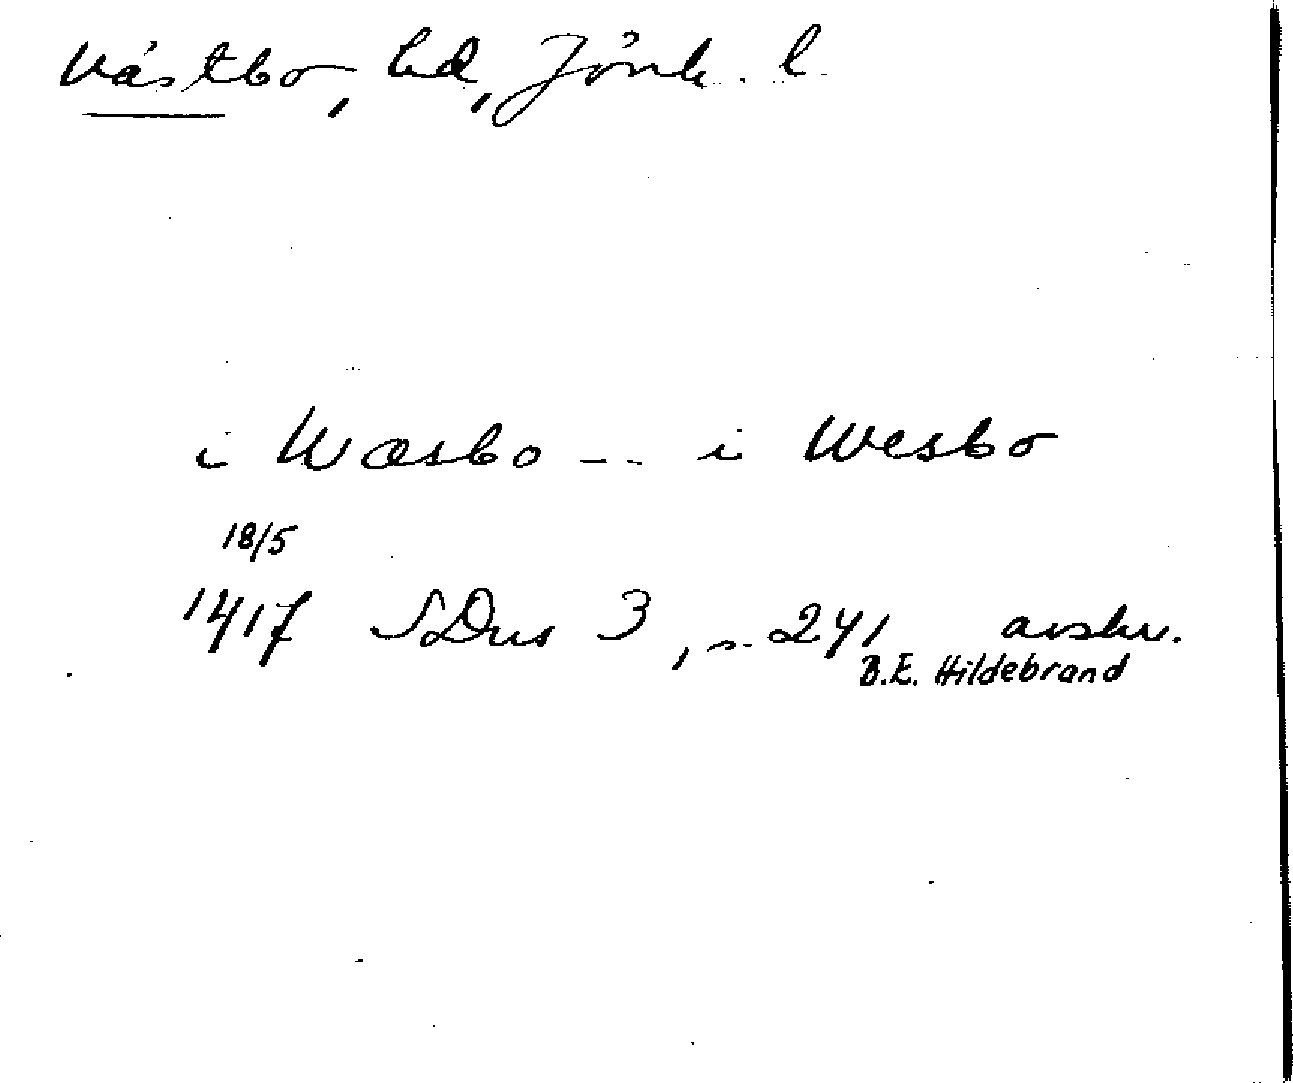 Västbo, hd, Jönk. l.
i Wæsbo - - - i Wesbo
18/5
1417 SDns 3, s. 241 avskr.
B.E. Hildebrand